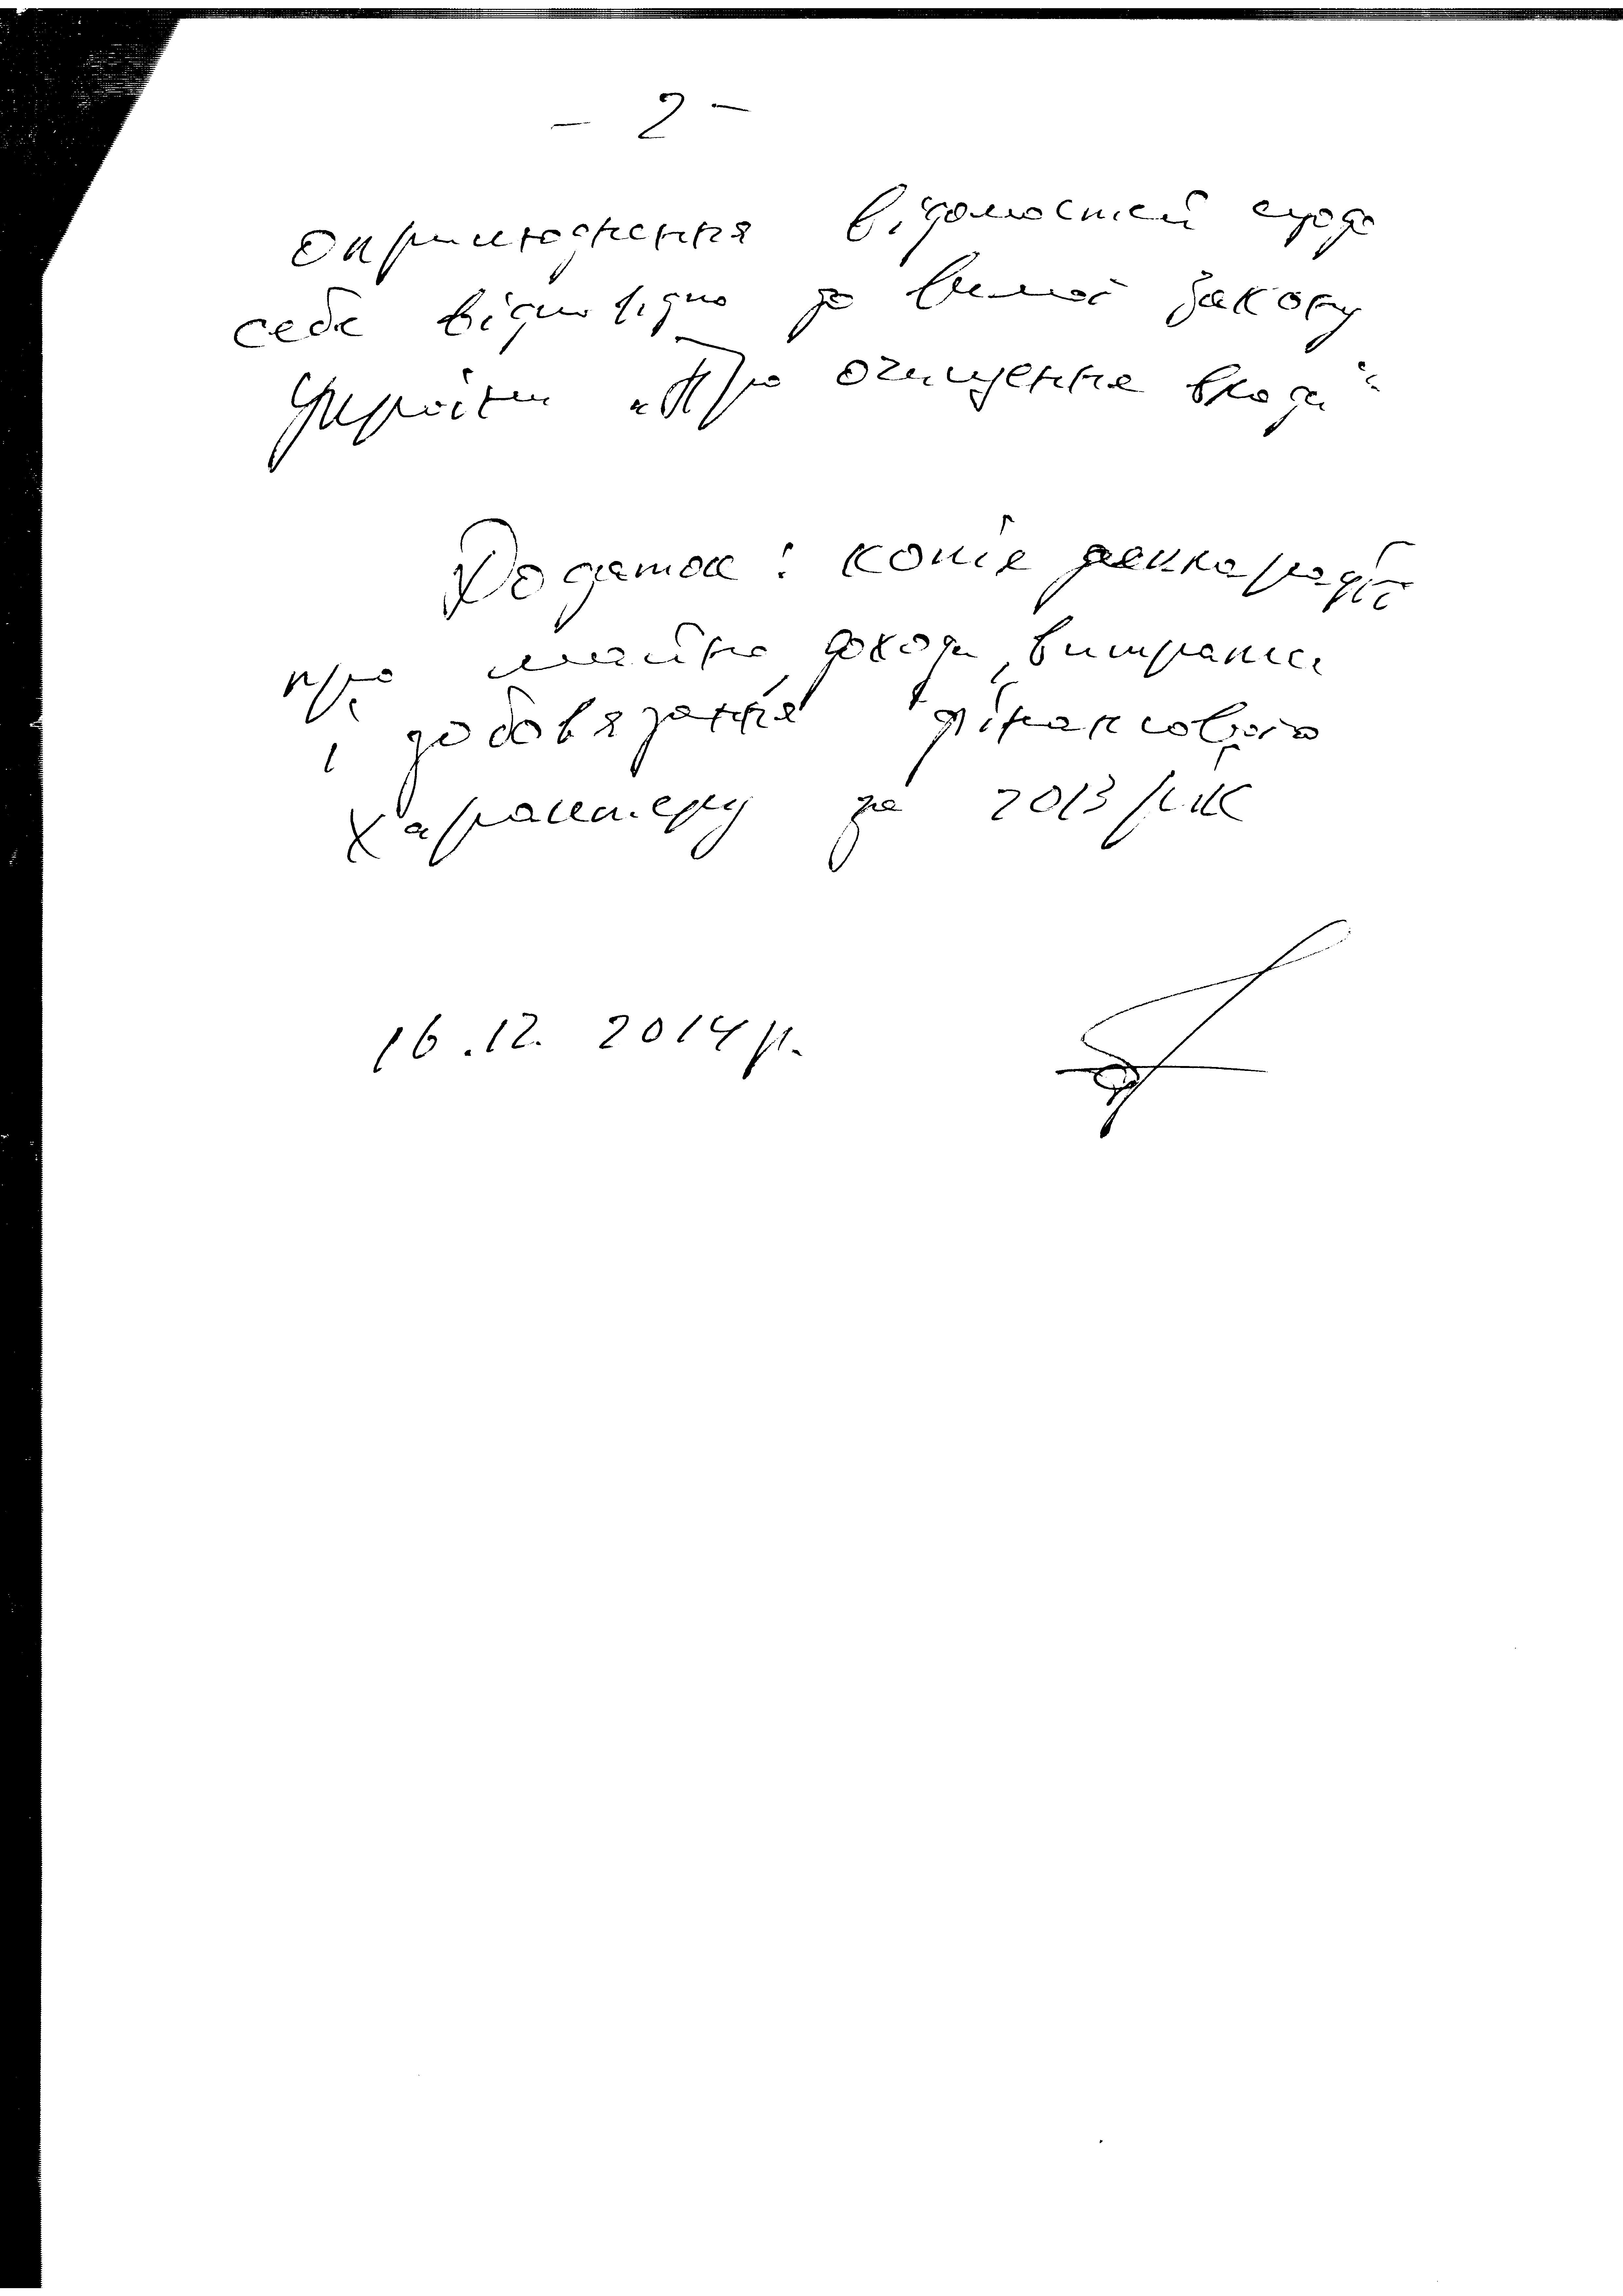 - 2 -
оприлюднення відомостей щодо
себе відповідно до вимог закону
України „Про очищення влади“
Додаток: копія декларації
про майно, доходи, витрати
і зобов'язання фінансового
характеру за 2013 рік
16.12. 2014 р.